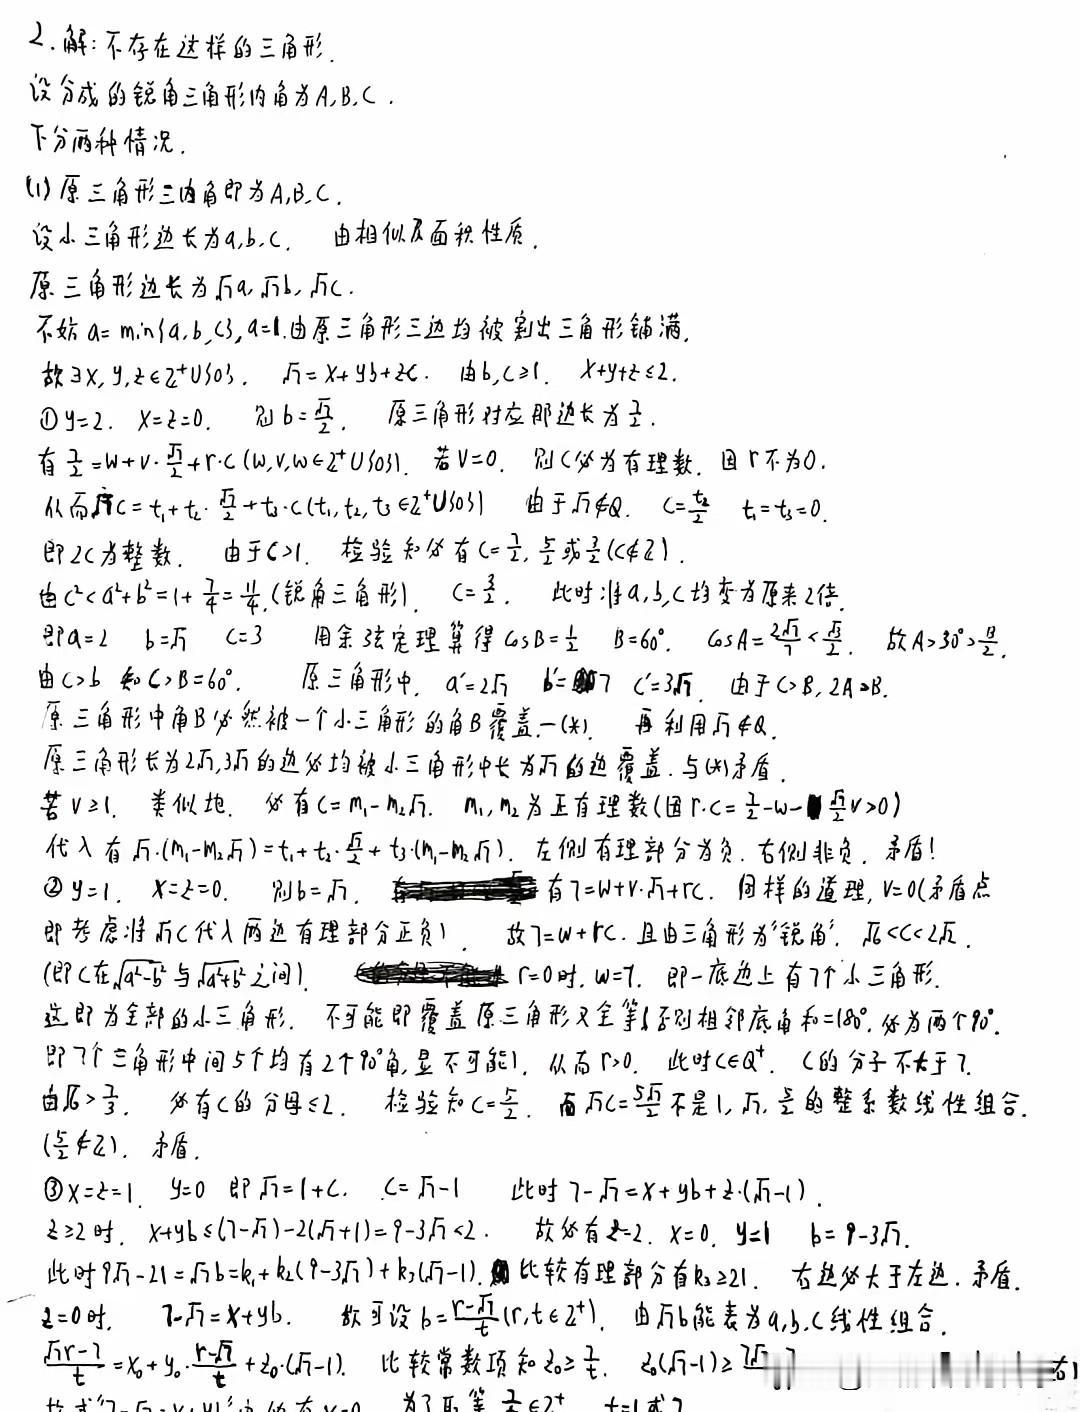 2.解:不存在这样的三角形.
设分成的锐角三角形内角为A,B,C.
下分两种情况.
(1)原三角形三内角即为A,B,C.
设小三角形边长为a,b,c. 由相似及面积性质.
原三角形边长为√7a,√7b,√7c.
不妨a=min{a,b,c},a=1.由原三角形三边均被割出三角形铺满.
故∃x,y,z∈Z⁺∪{0}. √7=x+yb+zc. 由b,c≥1. x+y+z≤2.
①y=2. x=z=0. 则b=√7/2. 原三角形对应那边长为7/2.
有7/2=w+v·√7/2+r·c(w,v,w∈Z⁺∪{0}). 若v=0. 则c必为有理数.因r不为0.
从而√7c=t₁+t₂·√7/2+t₃·c(t₁,t₂,t₃∈Z⁺∪{0}) 由于√7∉Q. c=t₂/2 t₁=t₃=0.
即2c为整数. 由于c>1. 检验知必有c=7/2,5/2或3/2(c∉Z).
由c²<a²+b²=1+7/4=11/4.(锐角三角形). c=3/2. 此时将a,b,c均变为原来2倍.
即a=2 b=√7 c=3 用余弦定理算得cosB=1/2 B=60°. cosA=2√7/7<√3/2. 故A>30°>B/2.
由c>b 知C>B=60°. 原三角形中. a'=2√7 b'=7 c'=3√7. 由于C>B,2A>B.
原三角形中角B必然被一个小三角形的角B覆盖.—(*). 再利用√7∉Q.
原三角形长为2√7,3√7的边必均被小三角形中长为√7的边覆盖.与(*)矛盾.
若v≥1. 类似地. 必有c=m₁-m₂√7. m₁,m₂为正有理数(因r·c=7/2-w-√7/2v>0)
代入有√7·(m₁-m₂√7)=t₁+t₂·√7/2+t₃·(m₁-m₂√7). 左侧有理部分为负.右侧非负.矛盾!
②y=1. x=z=0. 则b=√7. 有7=w+v·√7+rc. 同样的道理,v=0(矛盾点
即考虑将√7c代入两边有理部分正负). 故7=w+rc.且由三角形为"锐角". √6<c<2√2.
(即c在√(a²-b²)与√(a²+b²)之间). r=0时,w=7. 即一底边上有7个小三角形.
这即为全部的小三角形. 不可能即覆盖原三角形又全等(否则相邻底角和=180°.必为两个90°.
即7个三角形中间5个均有2个90°角,显不可能). 从而r>0. 此时c∈Q⁺. c的分子不大于7.
由√6>7/3. 必有c的分母≤2. 检验知c=5/2. 而√7c=5√7/2不是1,√7,5/2的整系数线性组合.
(5/2∉Z). 矛盾.
③x=z=1. y=0 即√7=1+c. c=√7-1 此时7-√7=x+yb+z·(√7-1).
z≥2时. x+yb≤(7-√7)-2(√7+1)=9-3√7<2. 故必有z=2. x=0. y=1 b=9-3√7.
此时9√7-21=√7b=k₁+k₂(9-3√7)+k₃(√7-1). 比较有理部分有k₃≥21. 右边必大于左边.矛盾.
z=0时. 7-√7=x+yb. 故可设b=(r-√7)/t(r,t∈Z⁺). 由√7b能表为a,b,c线性组合.
(√7r-7)/t=x₀+y₀·(r-√7)/t+z₀·(√7-1). 比较常数项知z₀≥7/t. z₀(√7-1)≥